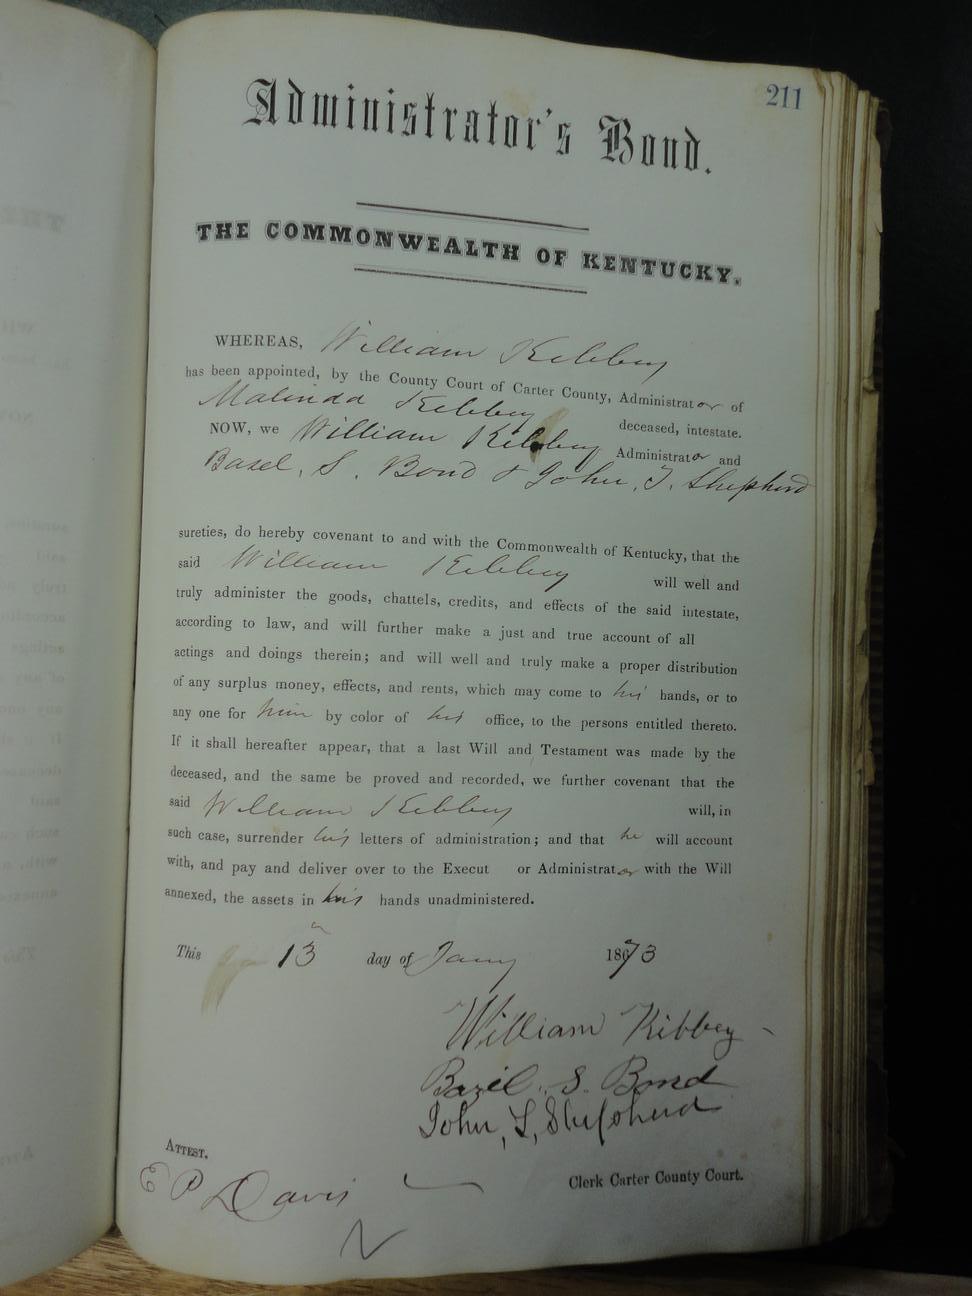 211
Administrator's Bond.
THE COMMONWEALTH OF KENTUCKY.
WHEREAS, William Kibbey
has been appointed, by the County Court of Carter County, Administrator of
Malinda Kibbey deceased, intestate.
NOW, we William Kibbey Administrator and
Basel. S. Bond & John. T. Shepherd
sureties, do hereby covenant to and with the Commonwealth of Kentucky, that the
said William Kibbey will well and
truly administer the goods, chattels, credits, and effects of the said intestate,
according to law, and will further make a just and true account of all
actings and doings therein; and will well and truly make a proper distribution
of any surplus money, effects, and rents, which may come to his hands, or to
any one for him by color of his office, to the persons entitled thereto.
If it shall hereafter appear, that a last Will and Testament was made by the
deceased, and the same be proved and recorded, we further covenant that the
said William Kibbey will, in
such case, surrender his letters of administration; and that he will account
with, and pay and deliver over to the Execut or Administrator with the Will
annexed, the assets in his hands unadministered.
This 13 day of Jany 1873
William Kibbey
Bazil. S. Bond
John, T, Shepherd
ATTEST.
E P Davis Clerk Carter County Court.